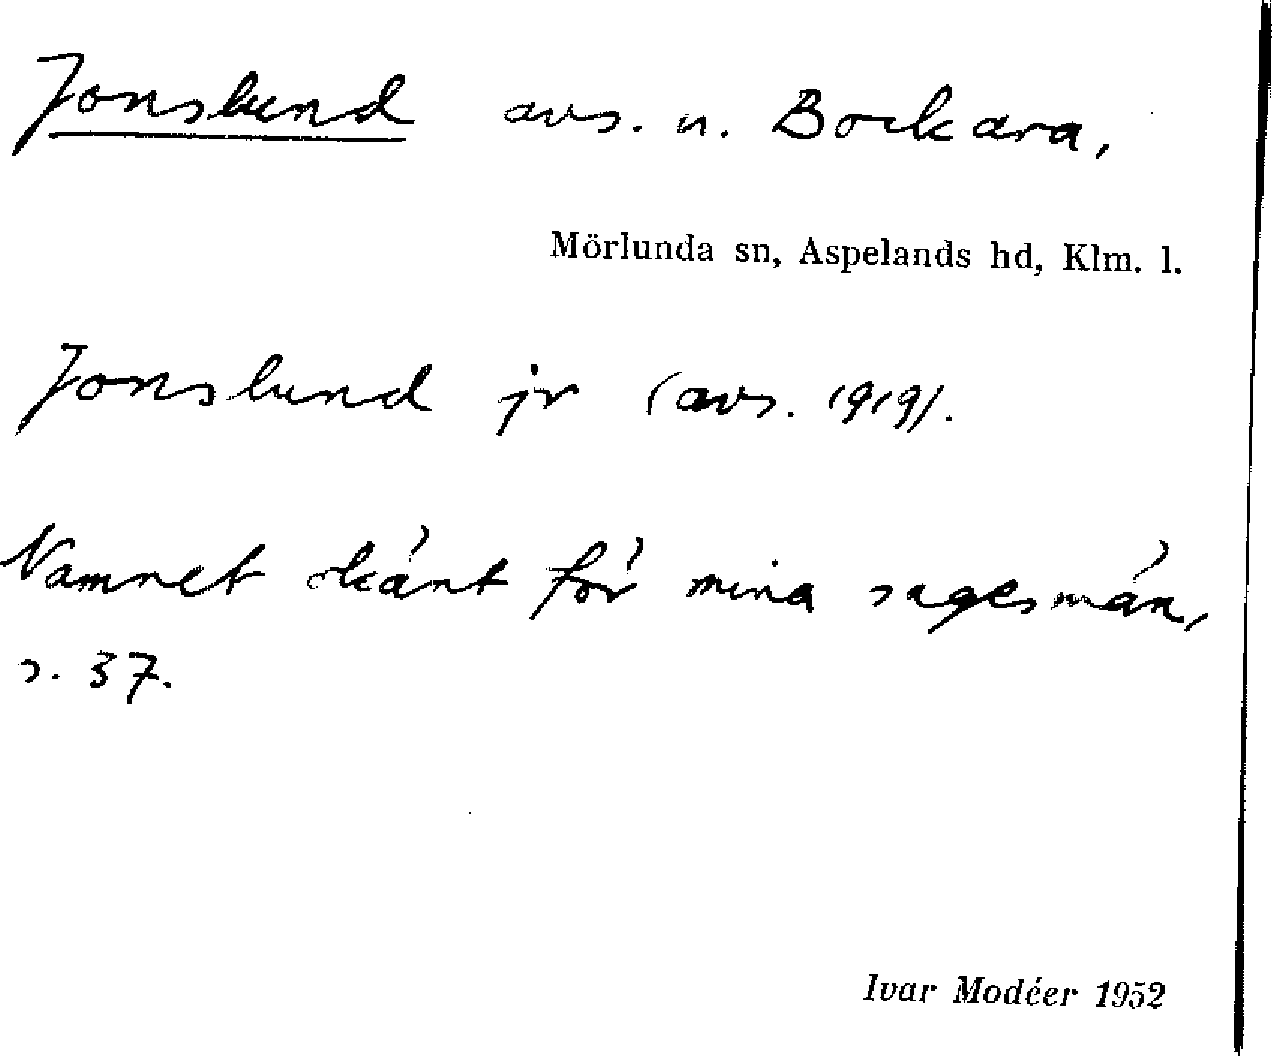 Jonslund avs. u. Bockara,
Mörlunda sn, Aspelands hd, Klm. l.
Jonslund jr (avs. 1919).
Namnet okänt för mina sagesmän,
s. 37.
Ivar Modéer 1952